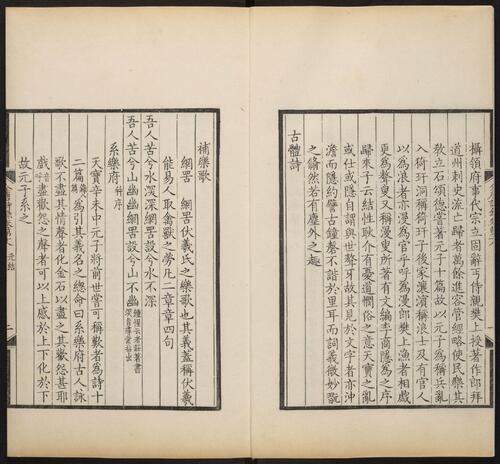 攝領府事代宗立固辭丐侍親樊上授著作郎拜
道州刺史流亡歸者萬餘進容管經略使民樂其
教立石頌德嘗著元子十篇故以元子為稱兵亂
入猗玗洞稱猗玗子後家瀼濱稱浪士及有官人
以為浪者亦漫為官乎呼為漫郎樊上漁者相戲
更為聱叟又稱漫叟所著有文編李商隱為之序
歸來子云結性耿介有憂道憫俗之意天寶之亂
或仕或隱自謂與世聱牙故其見於文字者亦沖
澹而隱約譬古鐘磬不諧於里耳而詞義微妙翫
之翛然若有塵外之趣
古體詩
補樂歌
網罟 網罟伏羲氏之樂歌也其義蓋稱伏羲
能易人取禽獸之勞凡二章章四句
吾人苦兮水深深網罟設兮水不深
吾人苦兮山幽幽網罟設兮山不幽
系樂府 并序
天寶辛未中元子將前世嘗可稱歎者為詩十
二篇為引其義名之總命曰系樂府古人詠
歌不盡其情聲者化金石以盡之其歡怨甚耶
戲盡歡怨之聲者可以上感於上下化於下
故元子系之